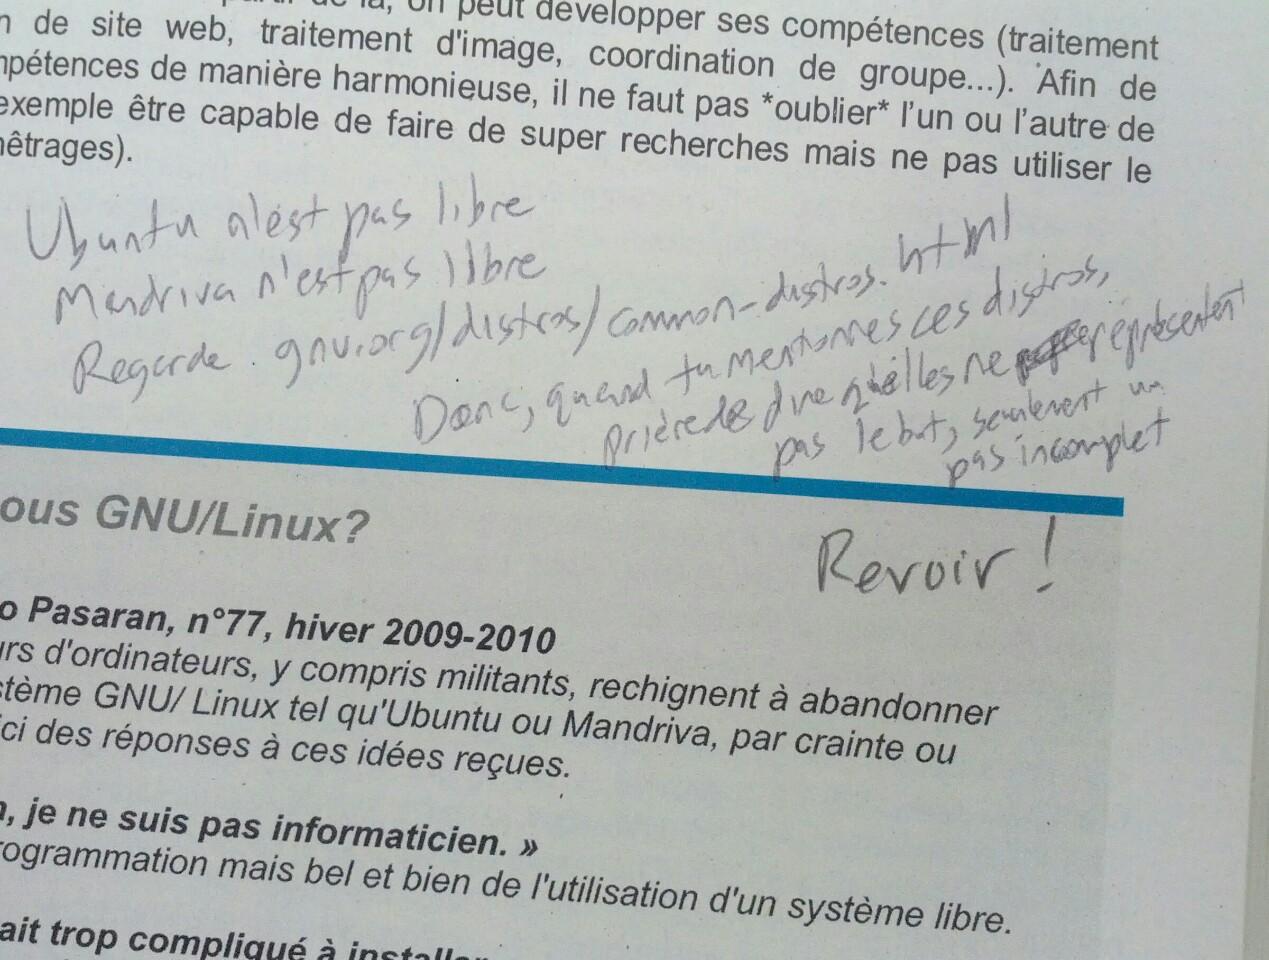 partir de là, on peut développer ses compétences (traitement
n de site web, traitement d'image, coordination de groupe...). Afin de
mpétences de manière harmonieuse, il ne faut pas *oublier* l'un ou l'autre de
exemple être capable de faire de super recherches mais ne pas utiliser le
nêtrages).
Ubuntu n'est pas libre
Mandriva n'est pas libre
Regarde gnu.org/distros/common-distros.html
Donc, quand tu mentionnes ces distros,
prière de dire qu'elles ne représentent
pas le but, seulement un
pas incomplet
ous GNU/Linux?
Revoir !
o Pasaran, n°77, hiver 2009-2010
urs d'ordinateurs, y compris militants, rechignent à abandonner
stème GNU/ Linux tel qu'Ubuntu ou Mandriva, par crainte ou
ci des réponses à ces idées reçues.
n, je ne suis pas informaticien. »
rogrammation mais bel et bien de l'utilisation d'un système libre.
ait trop compliqué à installer